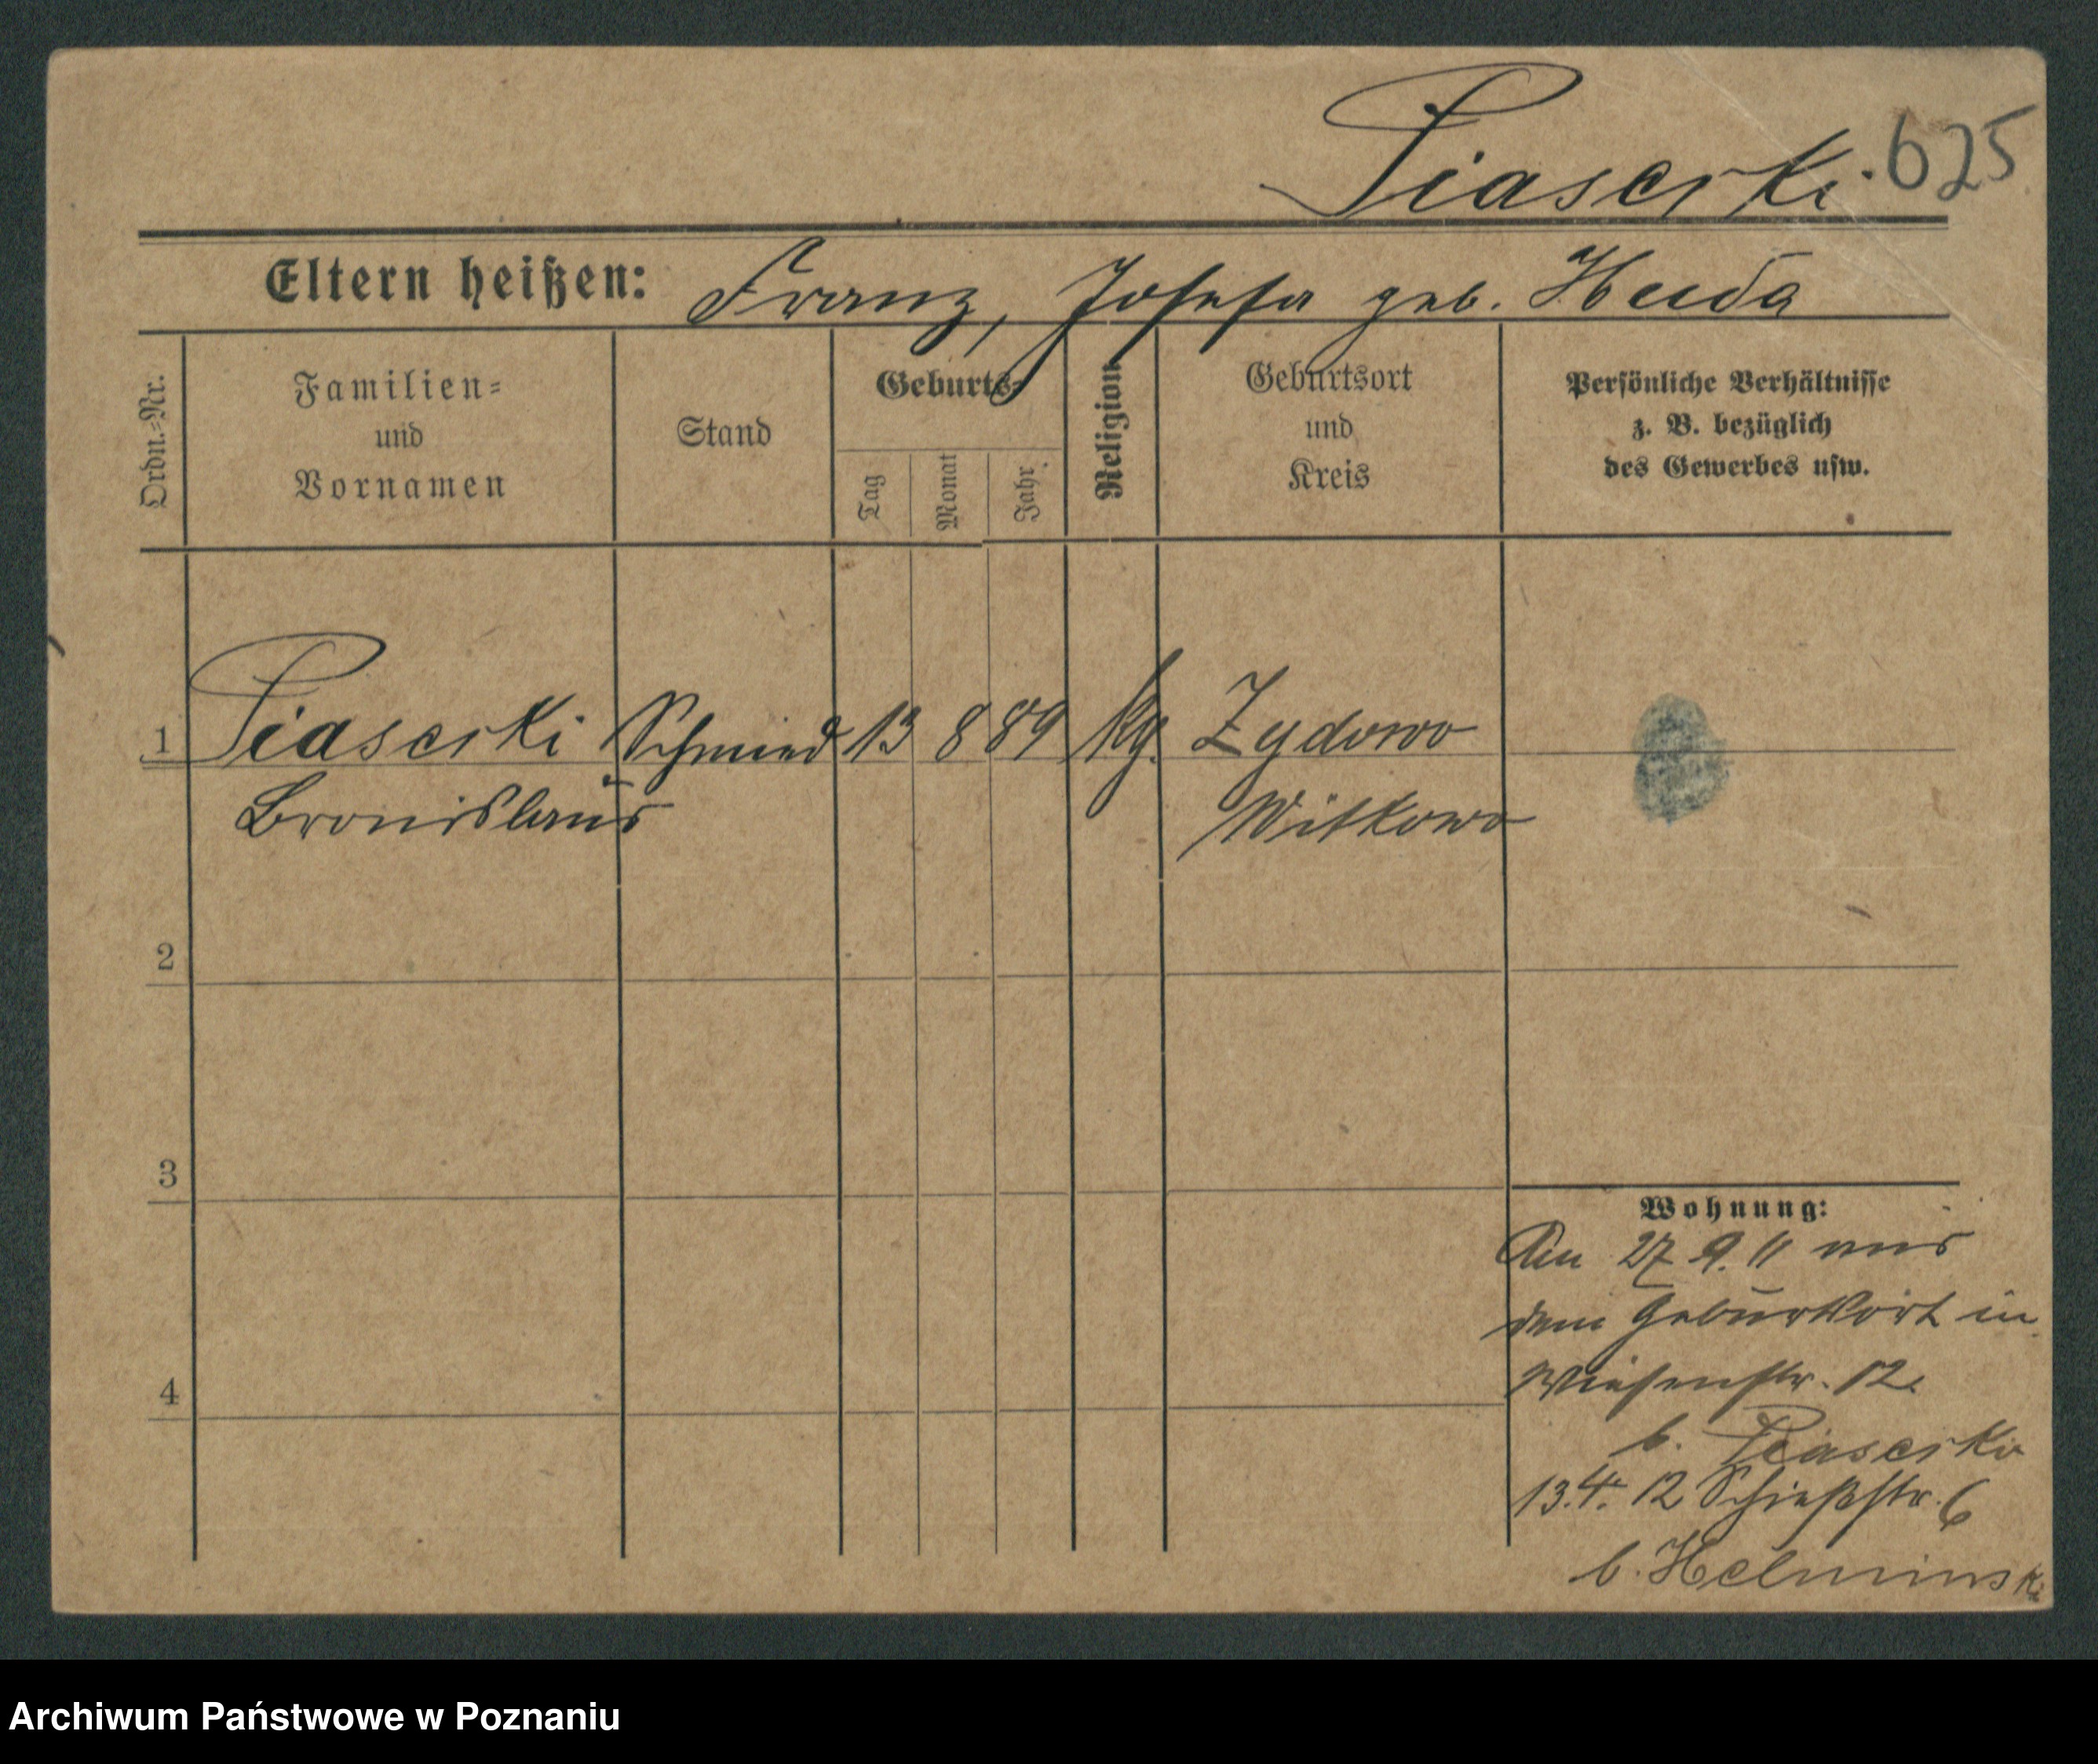 Piasecki. 625
Eltern heißen: Franz, Josefa geb. Huda
Ordn.=Nr.
Familien=
und
Vornamen
Stand
Geburts=
Tag
Monat
Jahr
Religion
Geburtsort
und
Kreis
Persönliche Verhältnisse
z. B. bezüglich
des Gewerbes usw.
1 Piasecki Schmied 13 8 89 kg. Zydowo
Bronislaus Witkowo
2
3
4
Wohnung:
Am 27 9. 11 aus
dem Geburtsort in
Wiesenstr. 12.
b. Piasecki
13.4. 12 Schießstr. 6
b. Helminski
Archiwum Państwowe w Poznaniu